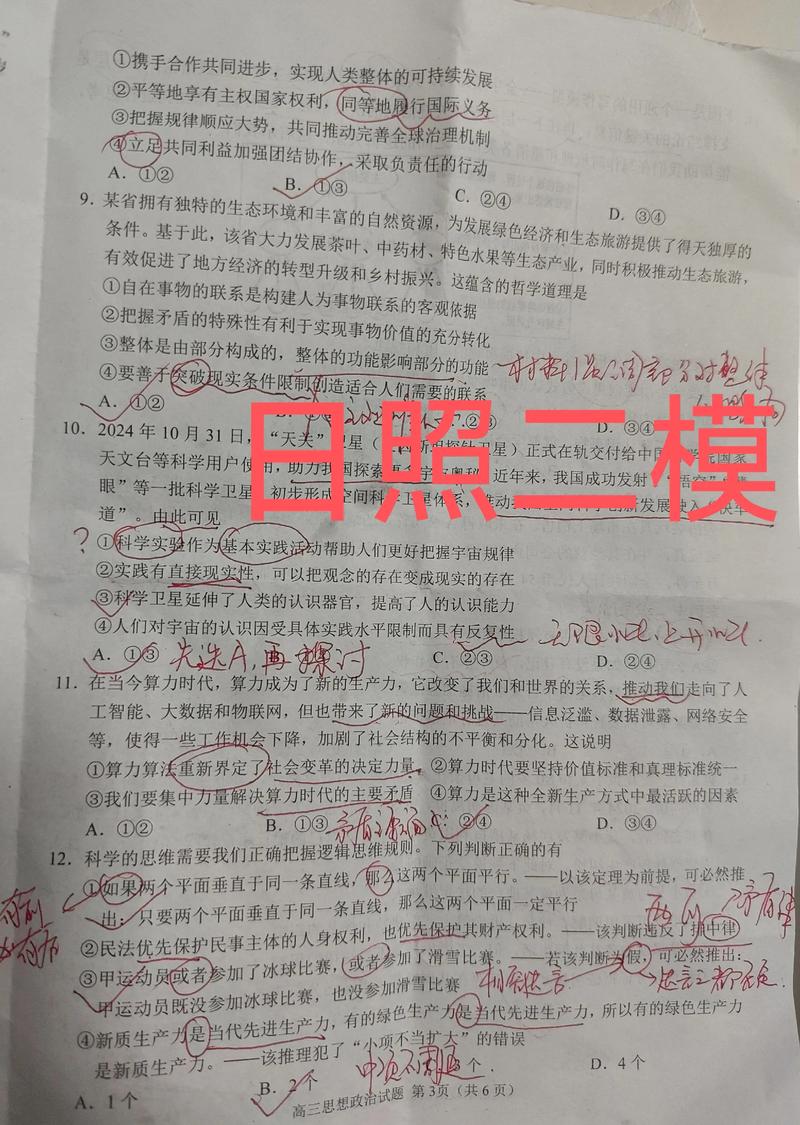 ①携手合作共同进步，实现人类整体的可持续发展
②平等地享有主权国家权利，同等地履行国际义务
③把握规律顺应大势，共同推动完善全球治理机制
④立足共同利益加强团结协作，采取负责任的行动
A．①② B．①③ C．②④ D．③④
9．某省拥有独特的生态环境和丰富的自然资源，为发展绿色经济和生态旅游提供了得天独厚的
条件。基于此，该省大力发展茶叶、中药材、特色水果等生态产业，同时积极推动生态旅游，
有效促进了地方经济的转型升级和乡村振兴。这蕴含的哲学道理是
①自在事物的联系是构建人为事物联系的客观依据
②把握矛盾的特殊性有利于实现事物价值的充分转化
③整体是由部分构成的，整体的功能影响部分的功能
④要善于突破现实条件限制创造适合人们需要的联系
A．①② ②③ D．③④
日照二模
10．2024年10月31日，“天关”卫星 正式在轨交付给中国 国家
天文台等科学用户使用，助力我国探索 近年来，我国成功发射
眼”等一批科学卫星，初步形成空间科学卫星体系，推动 快车
道”。由此可见
?①科学实验作为基本实践活动帮助人们更好把握宇宙规律
②实践有直接现实性，可以把观念的存在变成现实的存在
③科学卫星延伸了人类的认识器官，提高了人的认识能力
④人们对宇宙的认识因受具体实践水平限制而具有反复性
A．①③ 先选A,再探讨 C．②③ D．②④
11．在当今算力时代，算力成为了新的生产力，它改变了我们和世界的关系，推动我们走向了人
工智能、大数据和物联网，但也带来了新的问题和挑战——信息泛滥、数据泄露、网络安全
等，使得一些工作机会下降，加剧了社会结构的不平衡和分化。这说明
①算力算法重新界定了社会变革的决定力量 ②算力时代要坚持价值标准和真理标准统一
③我们要集中力量解决算力时代的主要矛盾 ④算力是这种全新生产方式中最活跃的因素
A．①② B．①③ ②④ D．③④
12．科学的思维需要我们正确把握逻辑思维规则。下列判断正确的有
①如果两个平面垂直于同一条直线，那么这两个平面平行。——以该定理为前提，可必然推
出：只要两个平面垂直于同一条直线，那么这两个平面一定平行
②民法优先保护民事主体的人身权利，也优先保护其财产权利。——该判断违反了排中律
③甲运动员或者参加了冰球比赛，或者参加了滑雪比赛。——若该判断为假，可必然推出：
甲运动员既没参加冰球比赛，也没参加滑雪比赛
④新质生产力是当代先进生产力，有的绿色生产力是当代先进生产力，所以有的绿色生产力
是新质生产力。——该推理犯了“小项不当扩大”的错误
A．1个 B．2个 3个 D．4个
高三思想政治试题 第3页（共6页）